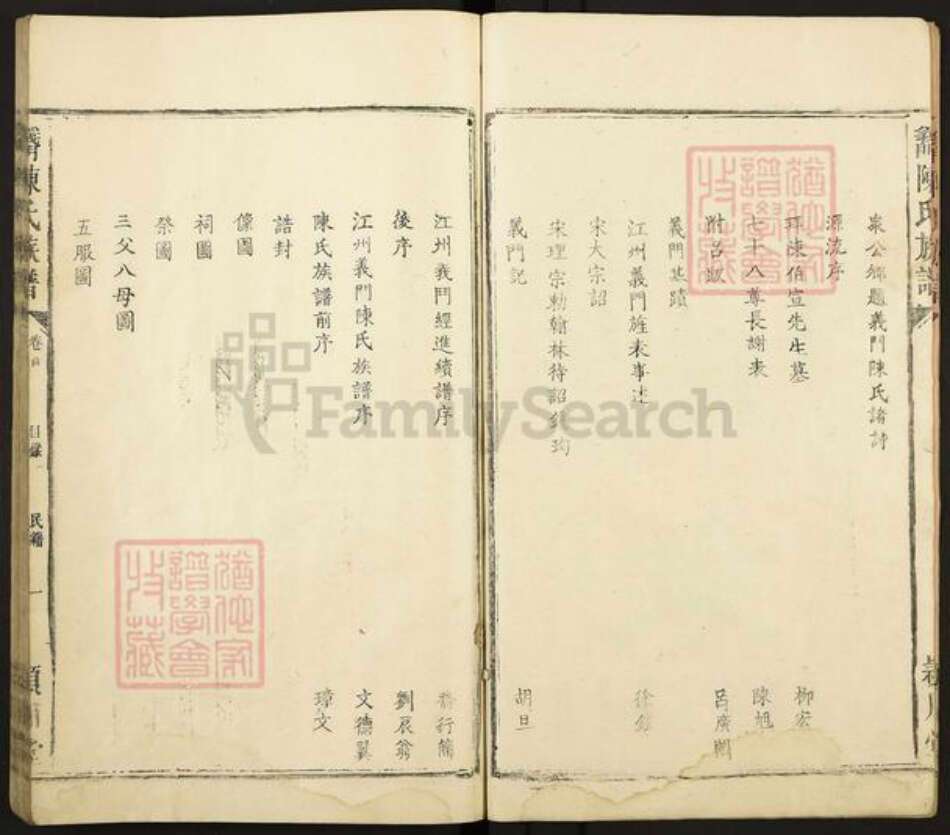 衆公卿題義門陳氏諸詩
源流序
拜陳伯宣先生墓 柳宏
七十八尊長謝表 陳旭
附呂跋 呂廣問
義門基蹟
江州義門旌表事述 徐鍇
宋大宗詔
宋理宗勅翰林待詔 珣
義門記 胡旦
潁川堂
陳氏族譜
江州義門經進續譜序 行簡
後序 劉辰翁
江州義門陳氏族譜序 文德翼
陳氏族譜前序 璋文
誥封
像圖
祠圖
祭圖
三父八母圖
五服圖
陳氏族譜
卷首
目錄
民籍
一
堂
譜學會
收藏
譜學會
收藏
FamilySearch